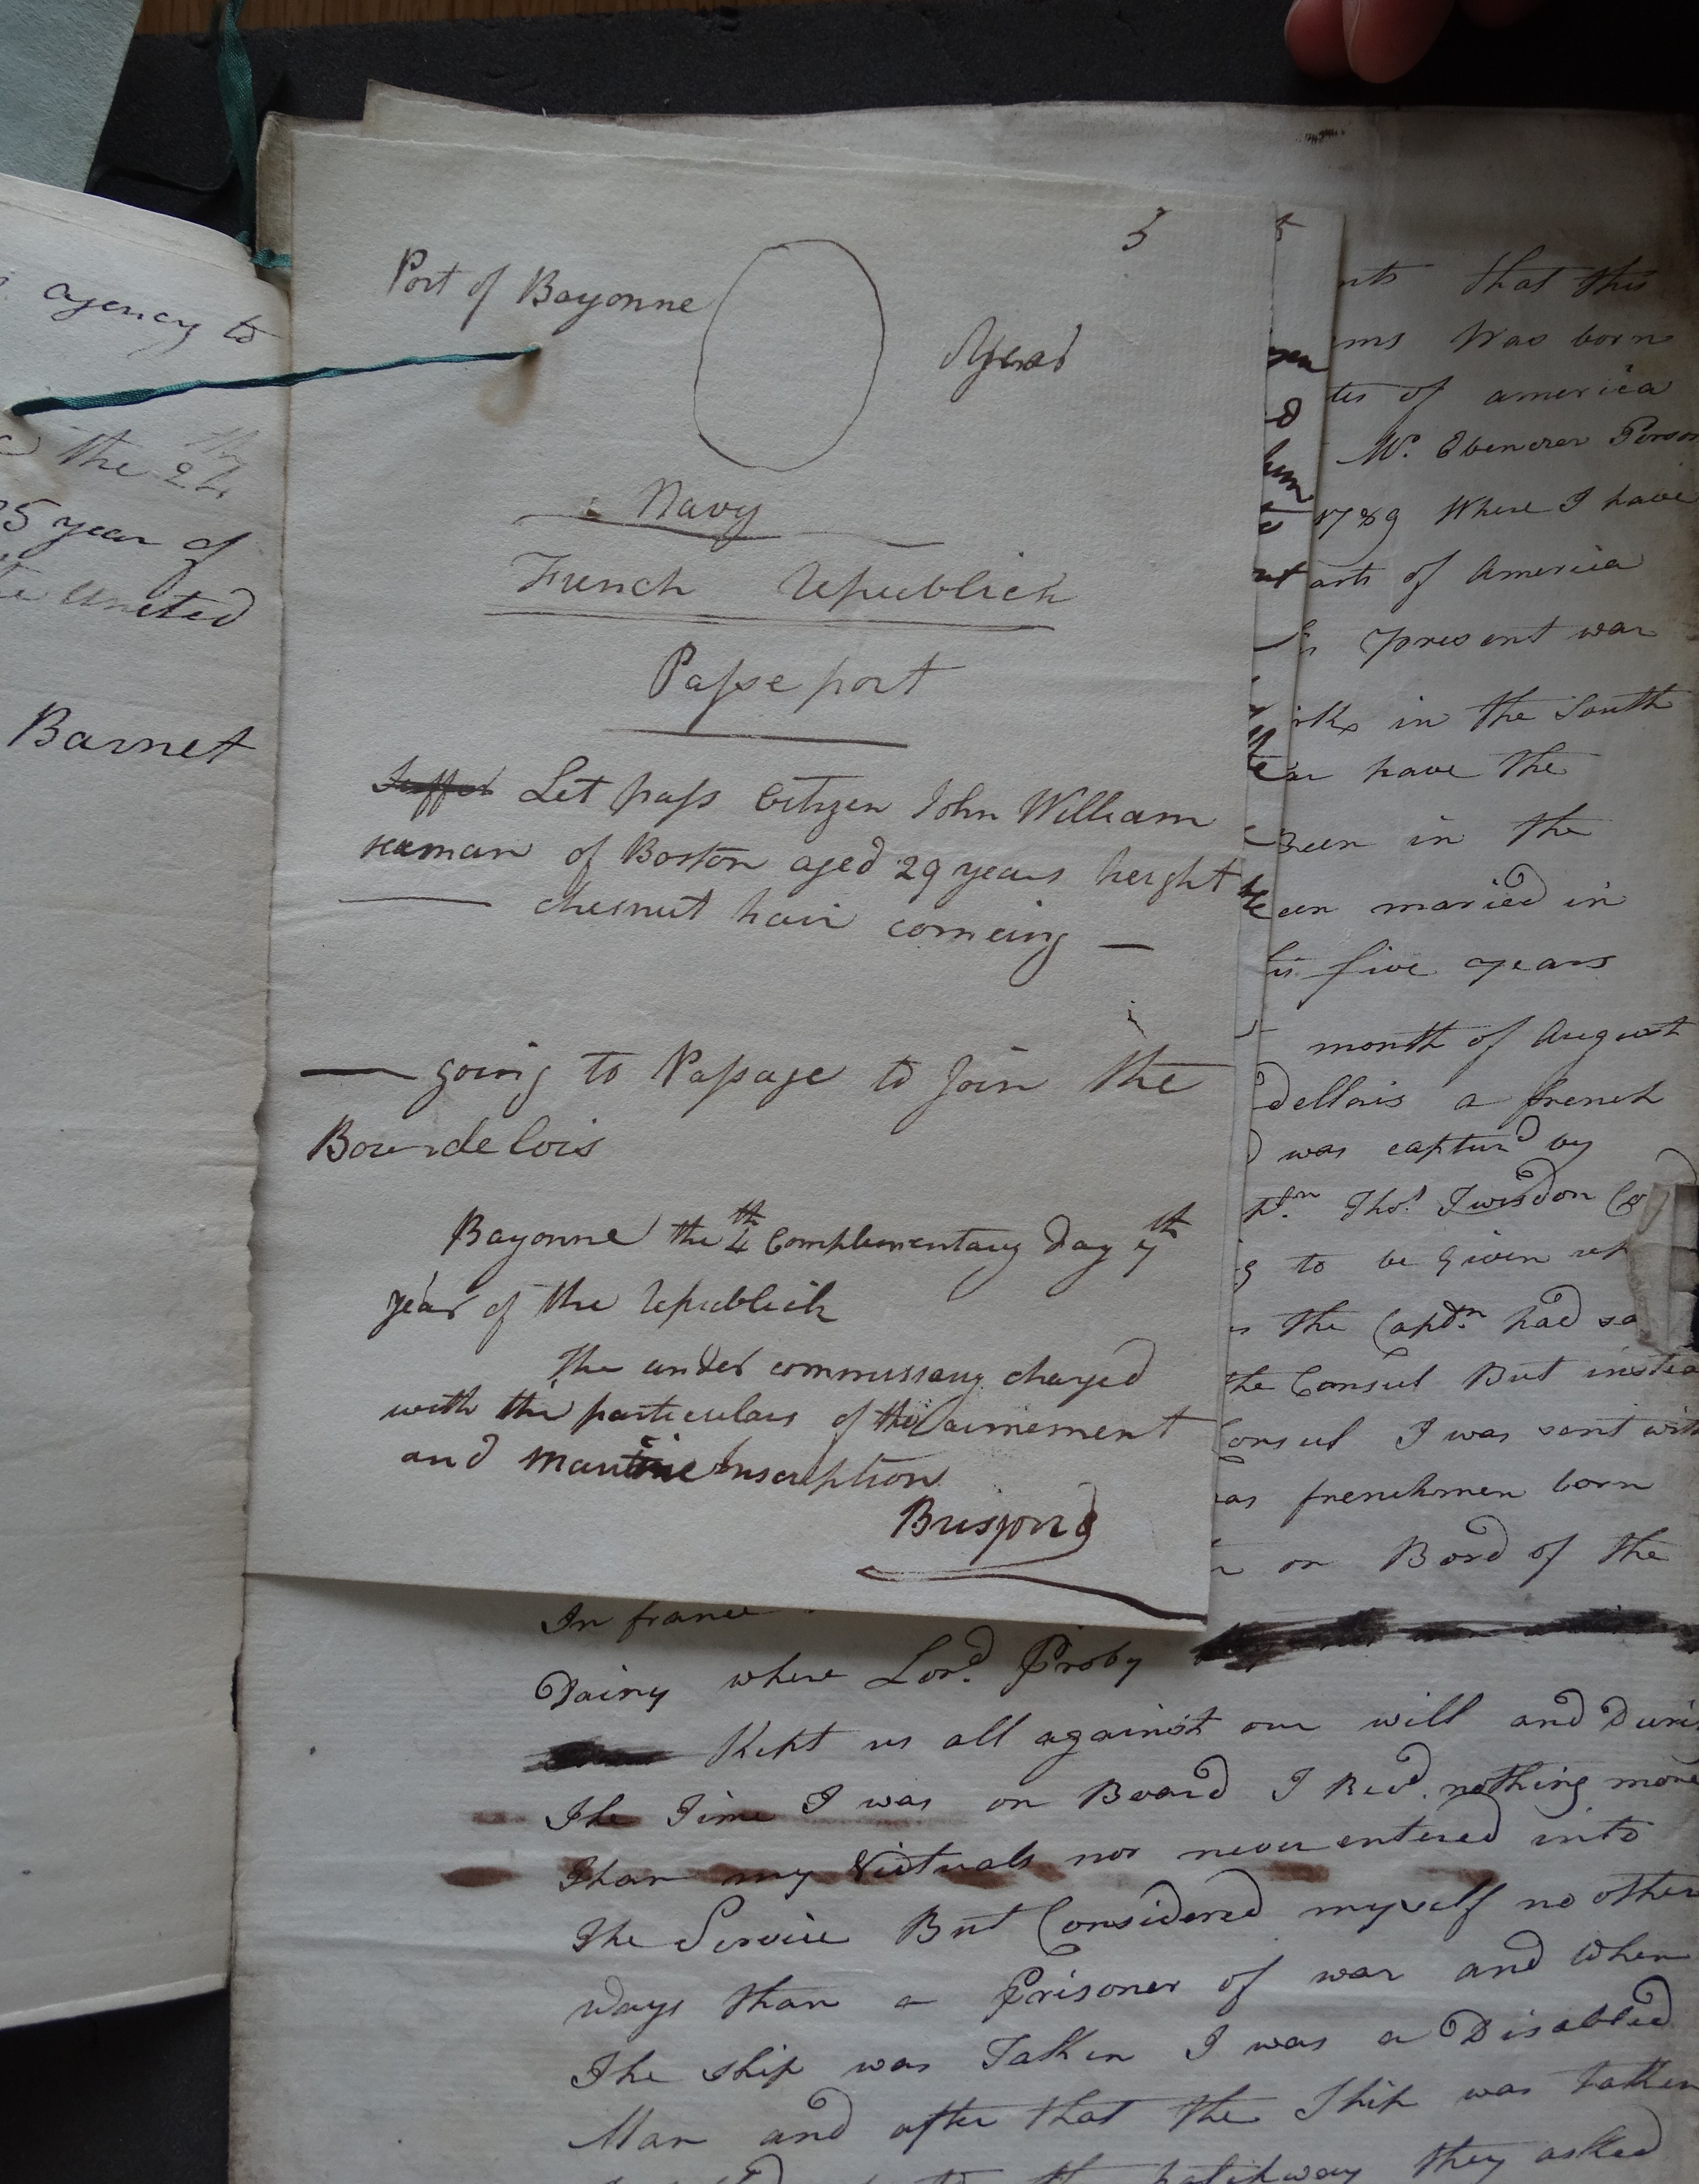 agency to
the 24th
5 year of
united
Barnet
5
Port of Bayonne
Navy
French Republick
Passeport
Let pass Citizen John William
seaman of Boston aged 29 years height
chesnut hair comeing —
— going to Passage to join the
Bourdelois
Bayonne the 4th Complementary day 7th
year of the Republick
The under commissary charged
with the particulars of the armement
and maritime Inscription
that this
was born
of america
Mr. Ebenezer
1789 Where I have
of America
present war
in the South
have the
Been in the
maried in
five years
month of August
a french
was capturd by
Thos. Twisdon
to be given up
the Captn. had
the Consul But
I was sent
frenchmen born
on Bord of the
In france
Dainy where Lord. Proby
Kept us all against our will and
The Time I was on Board I Recd. nothing more
Than my Victuals nor never entered into
The Service But Considered myself no other
ways than a Prisoner of war and when
The ship was Taken I was a Disabled
Man and after that the Ship was taken
they asked